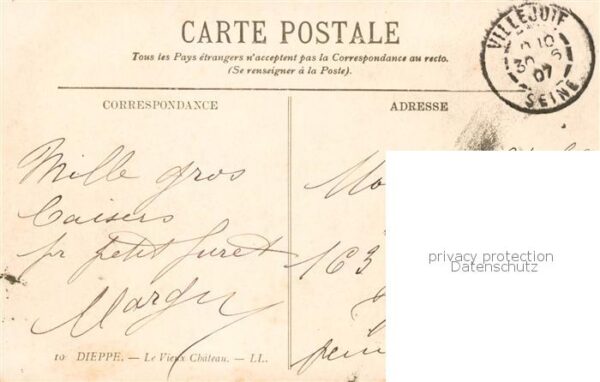 CARTE POSTALE
Tous les Pays étrangers n'acceptent pas la Correspondance au recto.
(Se renseigner à la Poste).
VILLEJUIF
30 6
07
SEINE
CORRESPONDANCE
Mille gros
baisers
pr petit furet
Margy
ADRESSE
163
privacy protection
Datenschutz
10 DIEPPE. — Le Vieux Château. — LL.